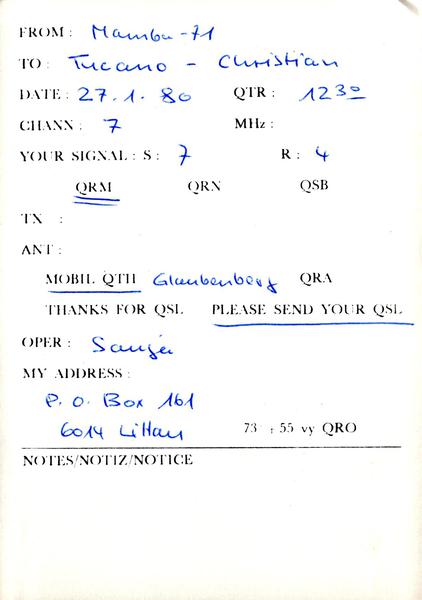 FROM: Mamba-71
TO: Tucano - Christian
DATE: 27.1.80 QTR: 12³⁰
CHANN: 7 MHz:
YOUR SIGNAL: S: 7 R: 4
QRM QRN QSB
TX :
ANT:
MOBIL QTH Glaubenberg QRA
THANKS FOR QSL PLEASE SEND YOUR QSL
OPER:
MY ADDRESS:
P.O. Box 161
6014 Littau 73 : 55 vy QRO
NOTES/NOTIZ/NOTICE